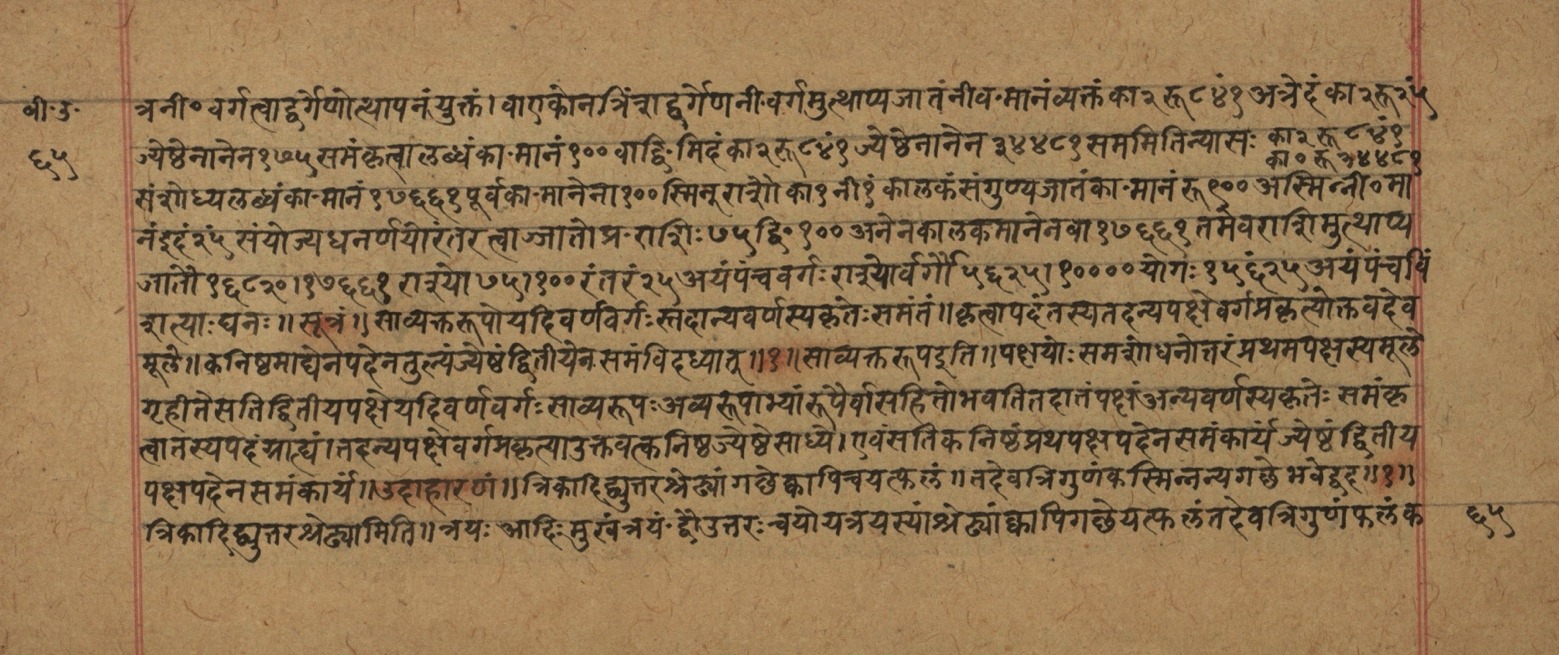 बी॰उ॰
६५
त्रनी॰वर्गत्वाद्वर्गेणोत्थापनंयुक्तं। वाएकोनत्रिंशद्वर्गेणनी॰वर्गमुत्थाप्यजातंनीव॰मानंव्यक्तंका२रू८४ं१अत्रेदंका२रू२ं५
ज्येष्ठेनानेन१७५समंकृत्वालब्धंका॰मानं१००वाद्वि॰मिदंका२रू८४ं१ज्येष्ठेनानेन३४४८१सममितिन्यासः का२रू८४ं१
का०रू३४४८१
संशोध्यलब्धंका॰मानं१७६६१पूर्वका॰मानेना१००स्मिन्राशौका१नी१ं कालकंसंगुण्यजातंका॰मानंरू१००अस्मिन्नी॰मा
नंइदं२५ं संयोज्यधनर्णयोरंतरत्वाज्जातोप्र॰राशिः७५द्वि॰१००अनेनकालकमानेनवा१७६६१तमेवराशिमुत्थाप्य
जातौ१६८२०।१७६६१राश्यो७५।१००रंतरं२५अयंपंचवर्गःराश्योर्वर्गौ५६२५।१००००योगः१५६२५अयंपंचविं
शत्याःघनः॥सूत्रं॥साव्यक्तरूपोयदिवर्णवर्गःस्तदान्यवर्णस्यकृतेःसमंतं॥कृत्वापदंतस्यतदन्यपक्षेवर्गप्रकृत्योक्तवदेव
मूले॥कनिष्ठमाद्येनपदेनतुल्यंज्येष्ठंद्वितीयेनसमंविदध्यात्॥१॥साव्यक्तरूपइति॥पक्षयोःसमशोधनोत्तरंप्रथमपक्षस्यमूले
गृहीतेसतिद्वितीयपक्षेयदिवर्णवर्गःसाव्यरूपःअव्यरूपाभ्यांरूपैर्वासहितोभवतितदातंपक्षंअन्यवर्णस्यकृतेःसमंकृ
त्वातस्यपदंग्राह्यं।तदन्यपक्षेवर्गप्रकृत्याउक्तवत्कनिष्ठज्येष्ठेसाध्ये।एवंसतिकनिष्ठंप्रथपक्षपदेनसमंकार्यंज्येष्ठंद्वितीय
पक्षपदेनसमंकार्यं॥उदाहारणं॥त्रिकादिद्व्युत्तरश्रेढ्यांगछेक्वापिचयत्फलं॥तदेवत्रिगुणंकस्मिन्नन्यगछेभवेद्वद॥१॥
त्रिकादिद्व्युत्तरश्रेढ्यामिति॥त्रयःआदिःमुखंत्रयं॰द्वौउत्तरःचयोयत्रयस्यांश्रेढ्यांक्वापिगछेयत्फलंतदेवत्रिगुणंफलंक
६५